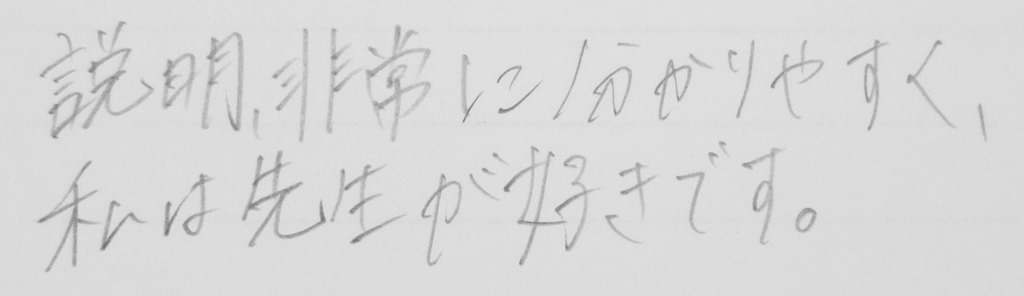 説明、非常に分かりやすく、
私は先生が好きです。